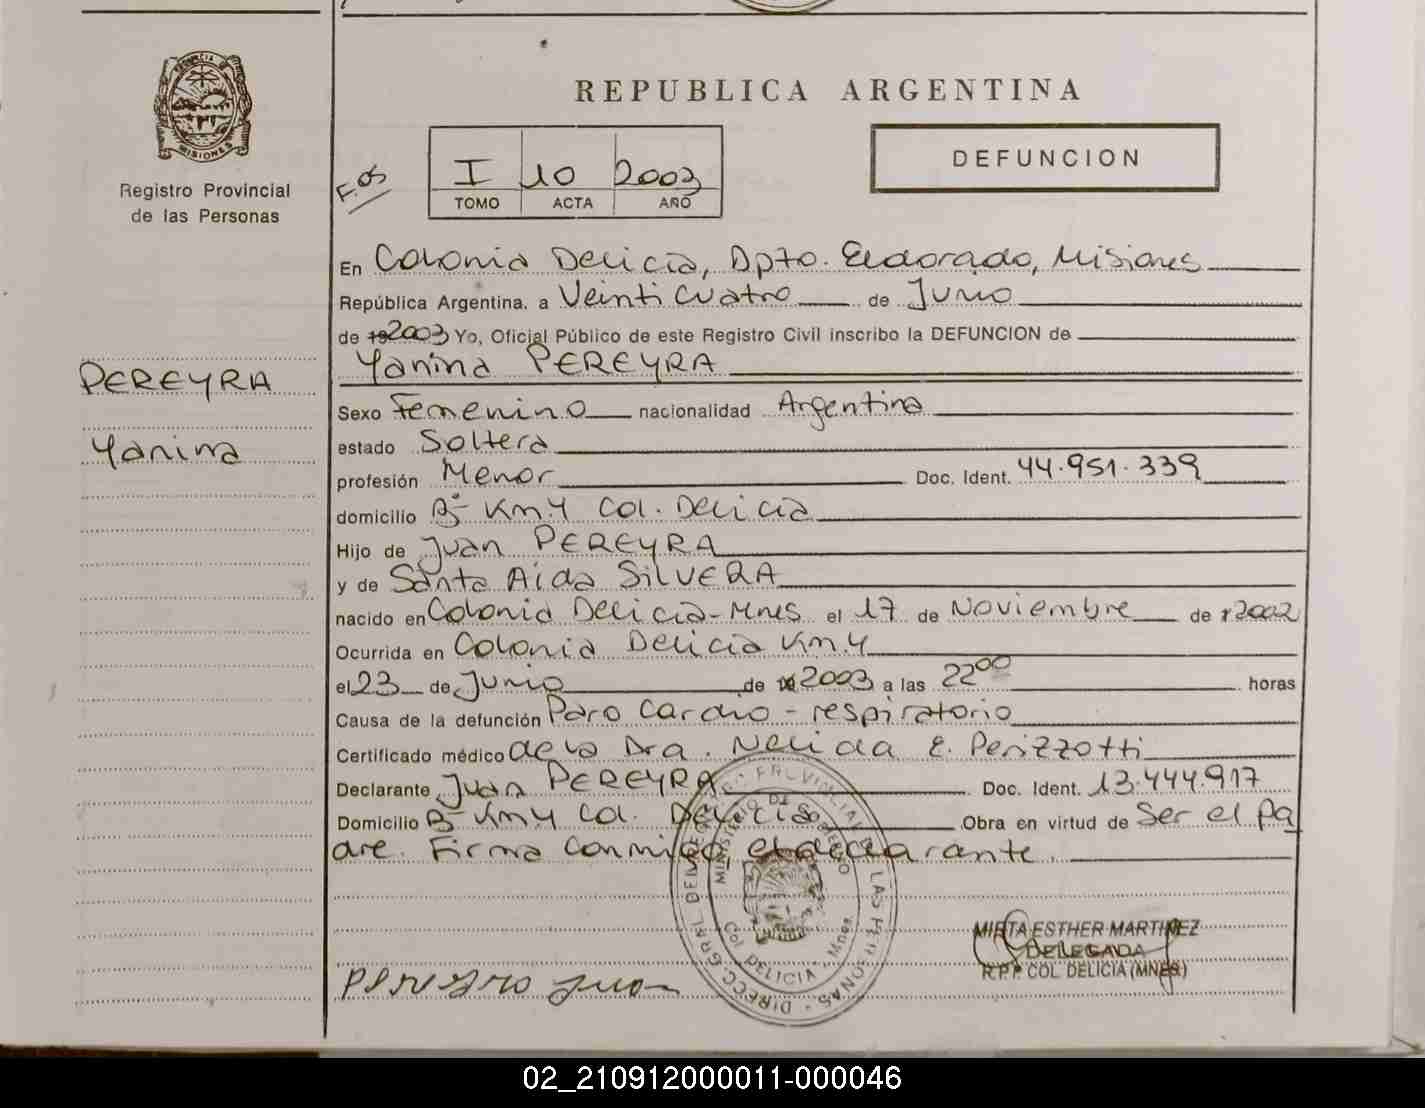 PROVINCIA DE
MISIONES
Registro Provincial
de las Personas
PEREYRA
Yanina
REPUBLICA ARGENTINA
F. 05
I 10 2003
TOMO ACTA AÑO
DEFUNCION
En Colonia Delicia, Dpto. Eldorado, Misiones
República Argentina, a Veinticuatro de Junio
de 19 2003 Yo, Oficial Público de este Registro Civil inscribo la DEFUNCION de
Yanina PEREYRA
Sexo Femenino nacionalidad Argentina
estado Soltera
profesión Menor Doc. Ident. 44.951.339
domicilio Bº Km.4 Col. Delicia
Hijo de Juan PEREYRA
y de Santa Aida SILVERA
nacido en Colonia Delicia-Mnes el 17 de Noviembre de 2002
Ocurrida en Colonia Delicia Km.4
el 23 de Junio de 2003 a las 22⁰⁰ horas
Causa de la defunción Paro cardio-respiratorio
Certificado médico de la Dra. Nelida E. Perizzotti
Declarante Juan PEREYRA Doc. Ident. 13.444.917
Domicilio Bº Km4 Col. Delicia Obra en virtud de Ser el pa
dre. Firma conmigo el declarante.
DIRECC. GRAL. DEL REG. PROVINCIAL DE LAS PERSONAS
MINISTERIO DE GOBIERNO
Col. DELICIA - Mnes.
MIRTA ESTHER MARTINEZ
DELEGADA
R.P.P. COL. DELICIA (MNES)
Pereyro Juan
02_210912000011-000046